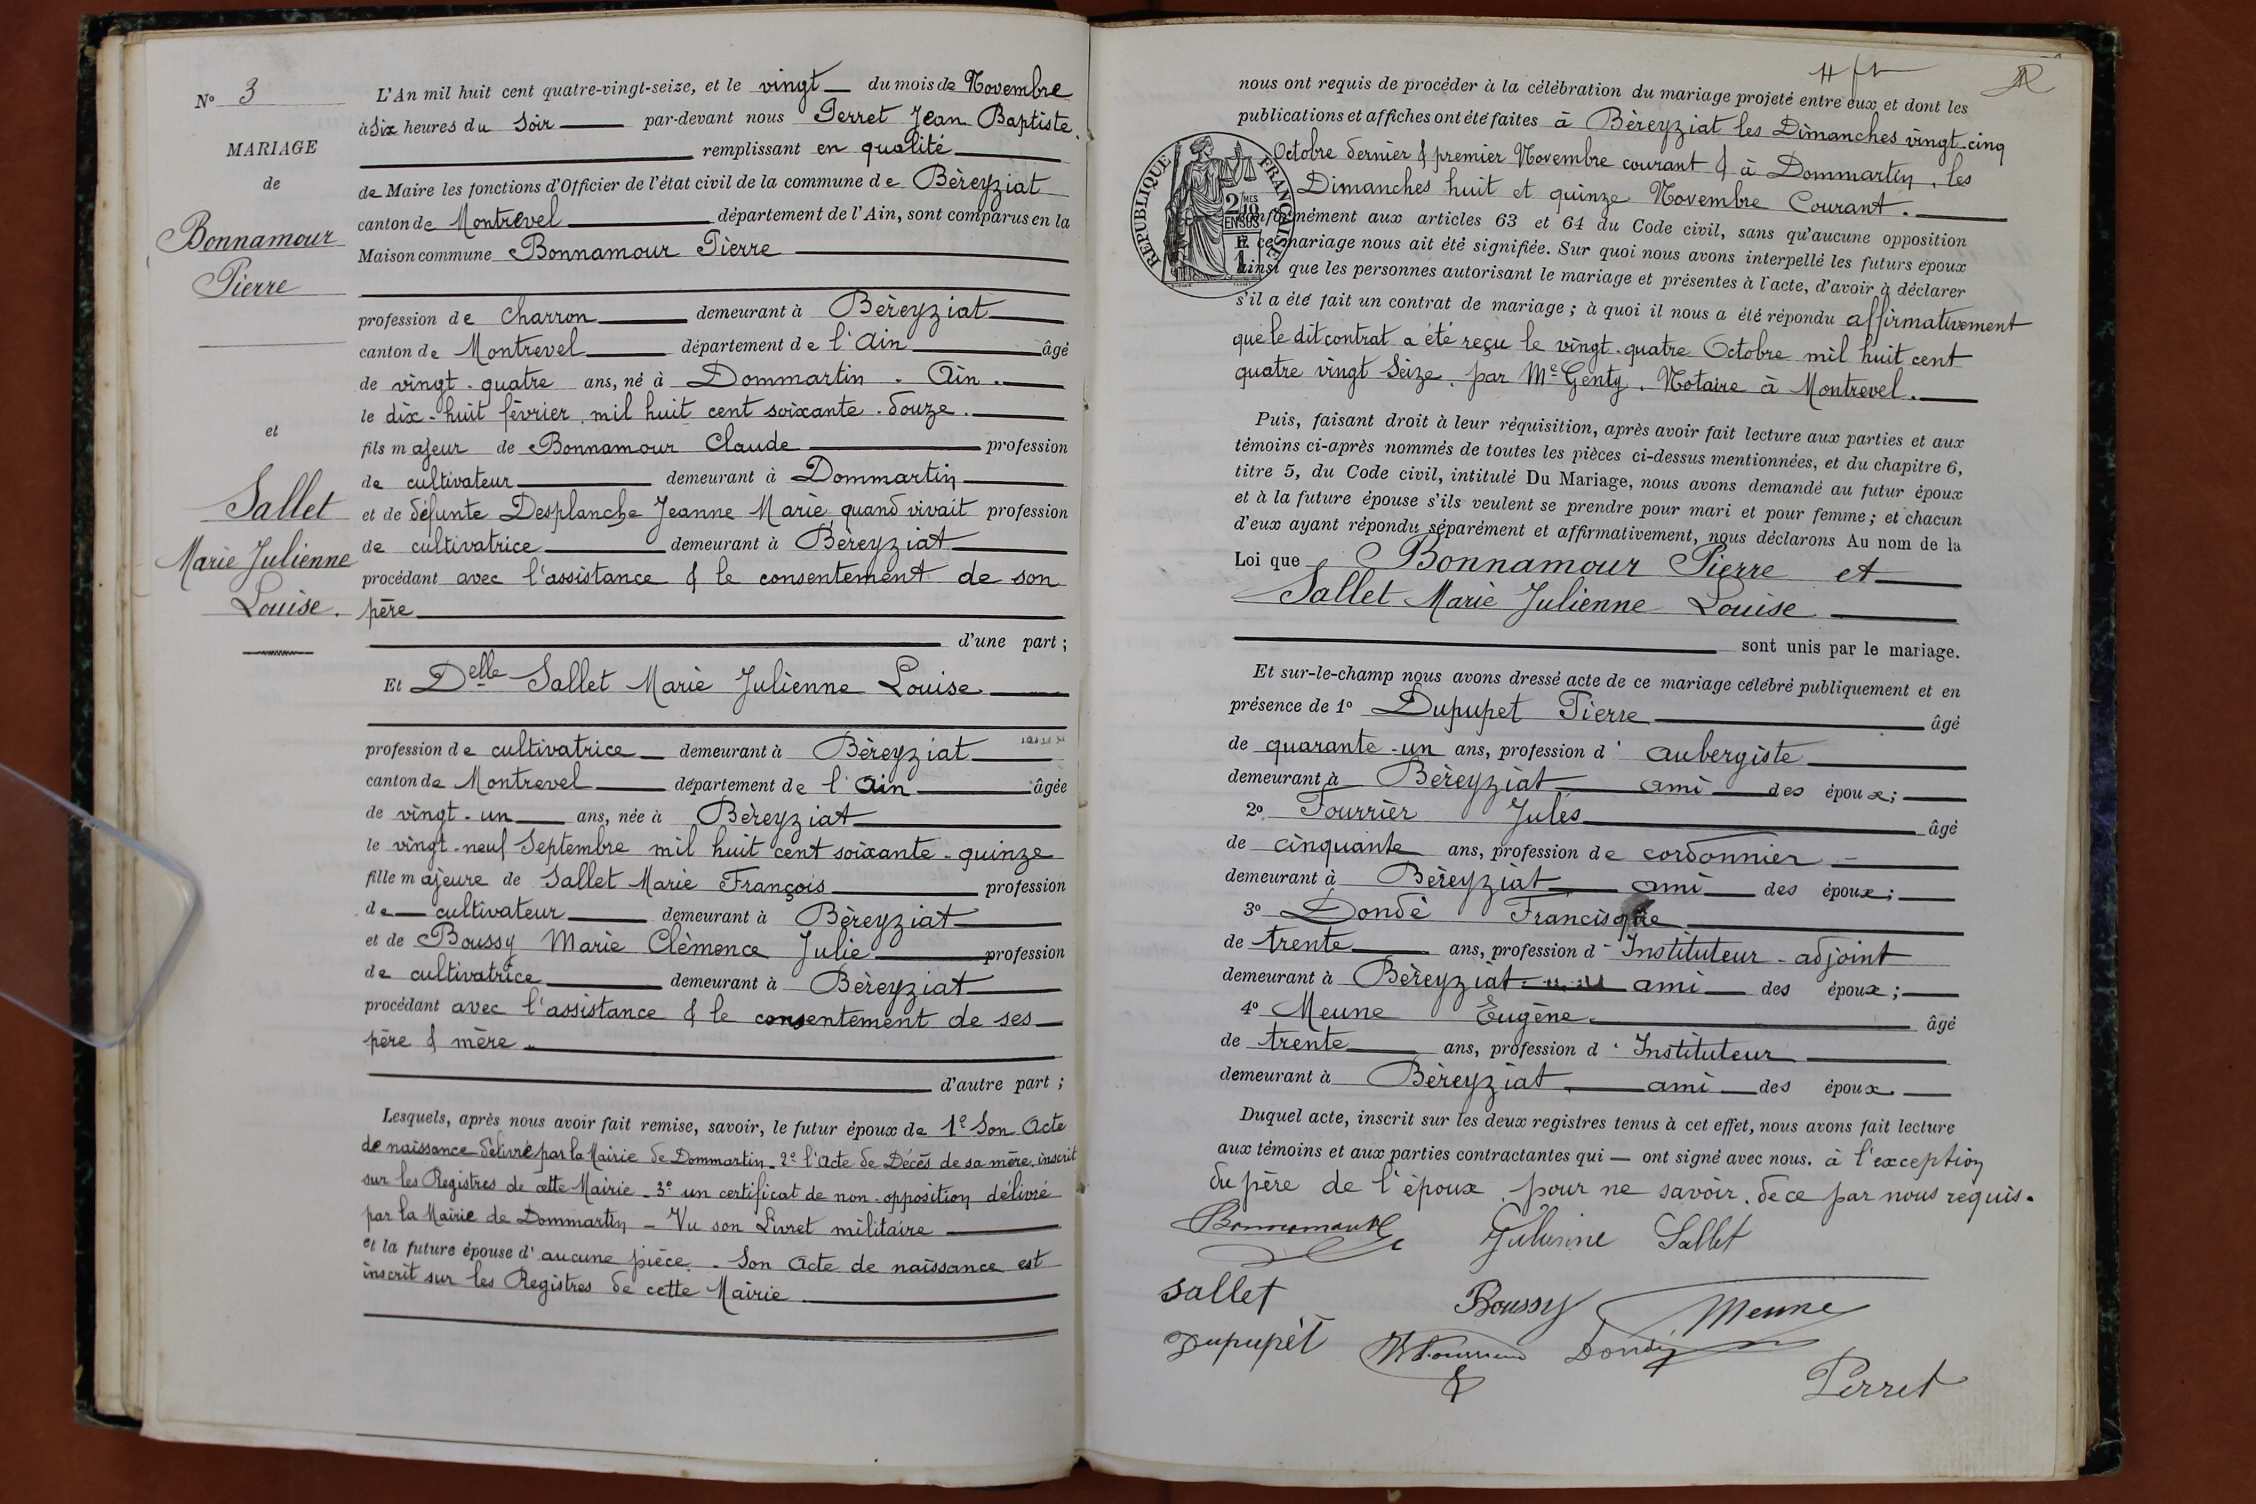 N° 3
MARIAGE
de
Bonnamour
Pierre
et
Sallet
Marie Julienne
Louise.
L'An mil huit cent quatre-vingt-seize, et le vingt du mois de Novembre
à Six heures du Soir par-devant nous Perret Jean Baptiste.
remplissant en qualité
de Maire les fonctions d'Officier de l'état civil de la commune de Bèreyziat
canton de Montrevel département de l'Ain, sont comparus en la
Maison commune Bonnamour Pierre
profession de charron demeurant à Bèreyziat
canton de Montrevel département de l'Ain âgé
de vingt-quatre ans, né à Dommartin. Ain.
le dix-huit février mil huit cent soixante-douze.
fils majeur de Bonnamour Claude profession
de cultivateur demeurant à Dommartin
et de défunte Desplanche Jeanne Marie, quand vivait profession
de cultivatrice demeurant à Bèreyziat
procédant avec l'assistance & le consentement de son
père
d'une part;
Et Delle Sallet Marie Julienne Louise
profession de cultivatrice demeurant à Bèreyziat
canton de Montrevel département de l'Ain âgée
de vingt-un ans, née à Bèreyziat
le vingt-neuf Septembre mil huit cent soixante-quinze
fille majeure de Sallet Marie François profession
de cultivateur demeurant à Bèreyziat
et de Boussy Marie Clèmence Julie profession
de cultivatrice demeurant à Bèreyziat
procédant avec l'assistance & le consentement de ses
père & mère.
d'autre part;
Lesquels, après nous avoir fait remise, savoir, le futur époux de 1° Son Acte
de naissance délivré par la Mairie de Dommartin - 2° l'Acte de Décès de sa mère, inscrit
sur les Registres de cette Mairie - 3° un certificat de non-opposition délivré
par la Mairie de Dommartin - Vu son Livret militaire
et la future épouse d'aucune pièce. Son Acte de naissance est
inscrit sur les Registres de cette Mairie
nous ont requis de procéder à la célébration du mariage projeté entre eux et dont les
publications et affiches ont été faites à Bèreyziat les Dimanches vingt-cinq
Octobre dernier & premier Novembre courant & à Dommartin, les
Dimanches huit et quinze Novembre Courant.
RÉPUBLIQUE FRANÇAISE
2 MES 10
EN SUS
1
conformément aux articles 63 et 64 du Code civil, sans qu'aucune opposition
à ce mariage nous ait été signifiée. Sur quoi nous avons interpellé les futurs époux
ainsi que les personnes autorisant le mariage et présentes à l'acte, d'avoir à déclarer
s'il a été fait un contrat de mariage; à quoi il nous a été répondu affirmativement
que le dit contrat a été reçu le vingt-quatre Octobre mil huit cent
quatre vingt Seize, par Me Genty, Notaire à Montrevel.
Puis, faisant droit à leur réquisition, après avoir fait lecture aux parties et aux
témoins ci-après nommés de toutes les pièces ci-dessus mentionnées, et du chapitre 6,
titre 5, du Code civil, intitulé Du Mariage, nous avons demandé au futur époux
et à la future épouse s'ils veulent se prendre pour mari et pour femme; et chacun
d'eux ayant répondu séparément et affirmativement, nous déclarons Au nom de la
Loi que Bonnamour Pierre et
Sallet Marie Julienne Louise
sont unis par le mariage.
Et sur-le-champ nous avons dressé acte de ce mariage célébré publiquement et en
présence de 1° Dupupet Pierre âgé
de quarante-un ans, profession d'aubergiste
demeurant à Bèreyziat ami des époux;
2° Fourrier Jules âgé
de cinquante ans, profession de cordonnier
demeurant à Bèreyziat ami des époux;
3° Dondé Francisque
de trente ans, profession d'Instituteur-adjoint
demeurant à Bèreyziat ami des époux;
4° Meune Eugène. âgé
de trente ans, profession d'Instituteur
demeurant à Bèreyziat ami des époux
Duquel acte, inscrit sur les deux registres tenus à cet effet, nous avons fait lecture
aux témoins et aux parties contractantes qui — ont signé avec nous. à l'exception
du père de l'époux, pour ne savoir, de ce par nous requis.
Bonnamour Julienne Sallet
Sallet Boussy Meune
Dupupet Fourrier Dondé
Perret